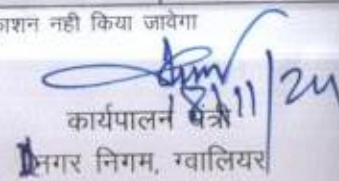 काशन नही किया जावेगा
18/11/24
कार्यपालन यंत्री
नगर निगम, ग्वालियर